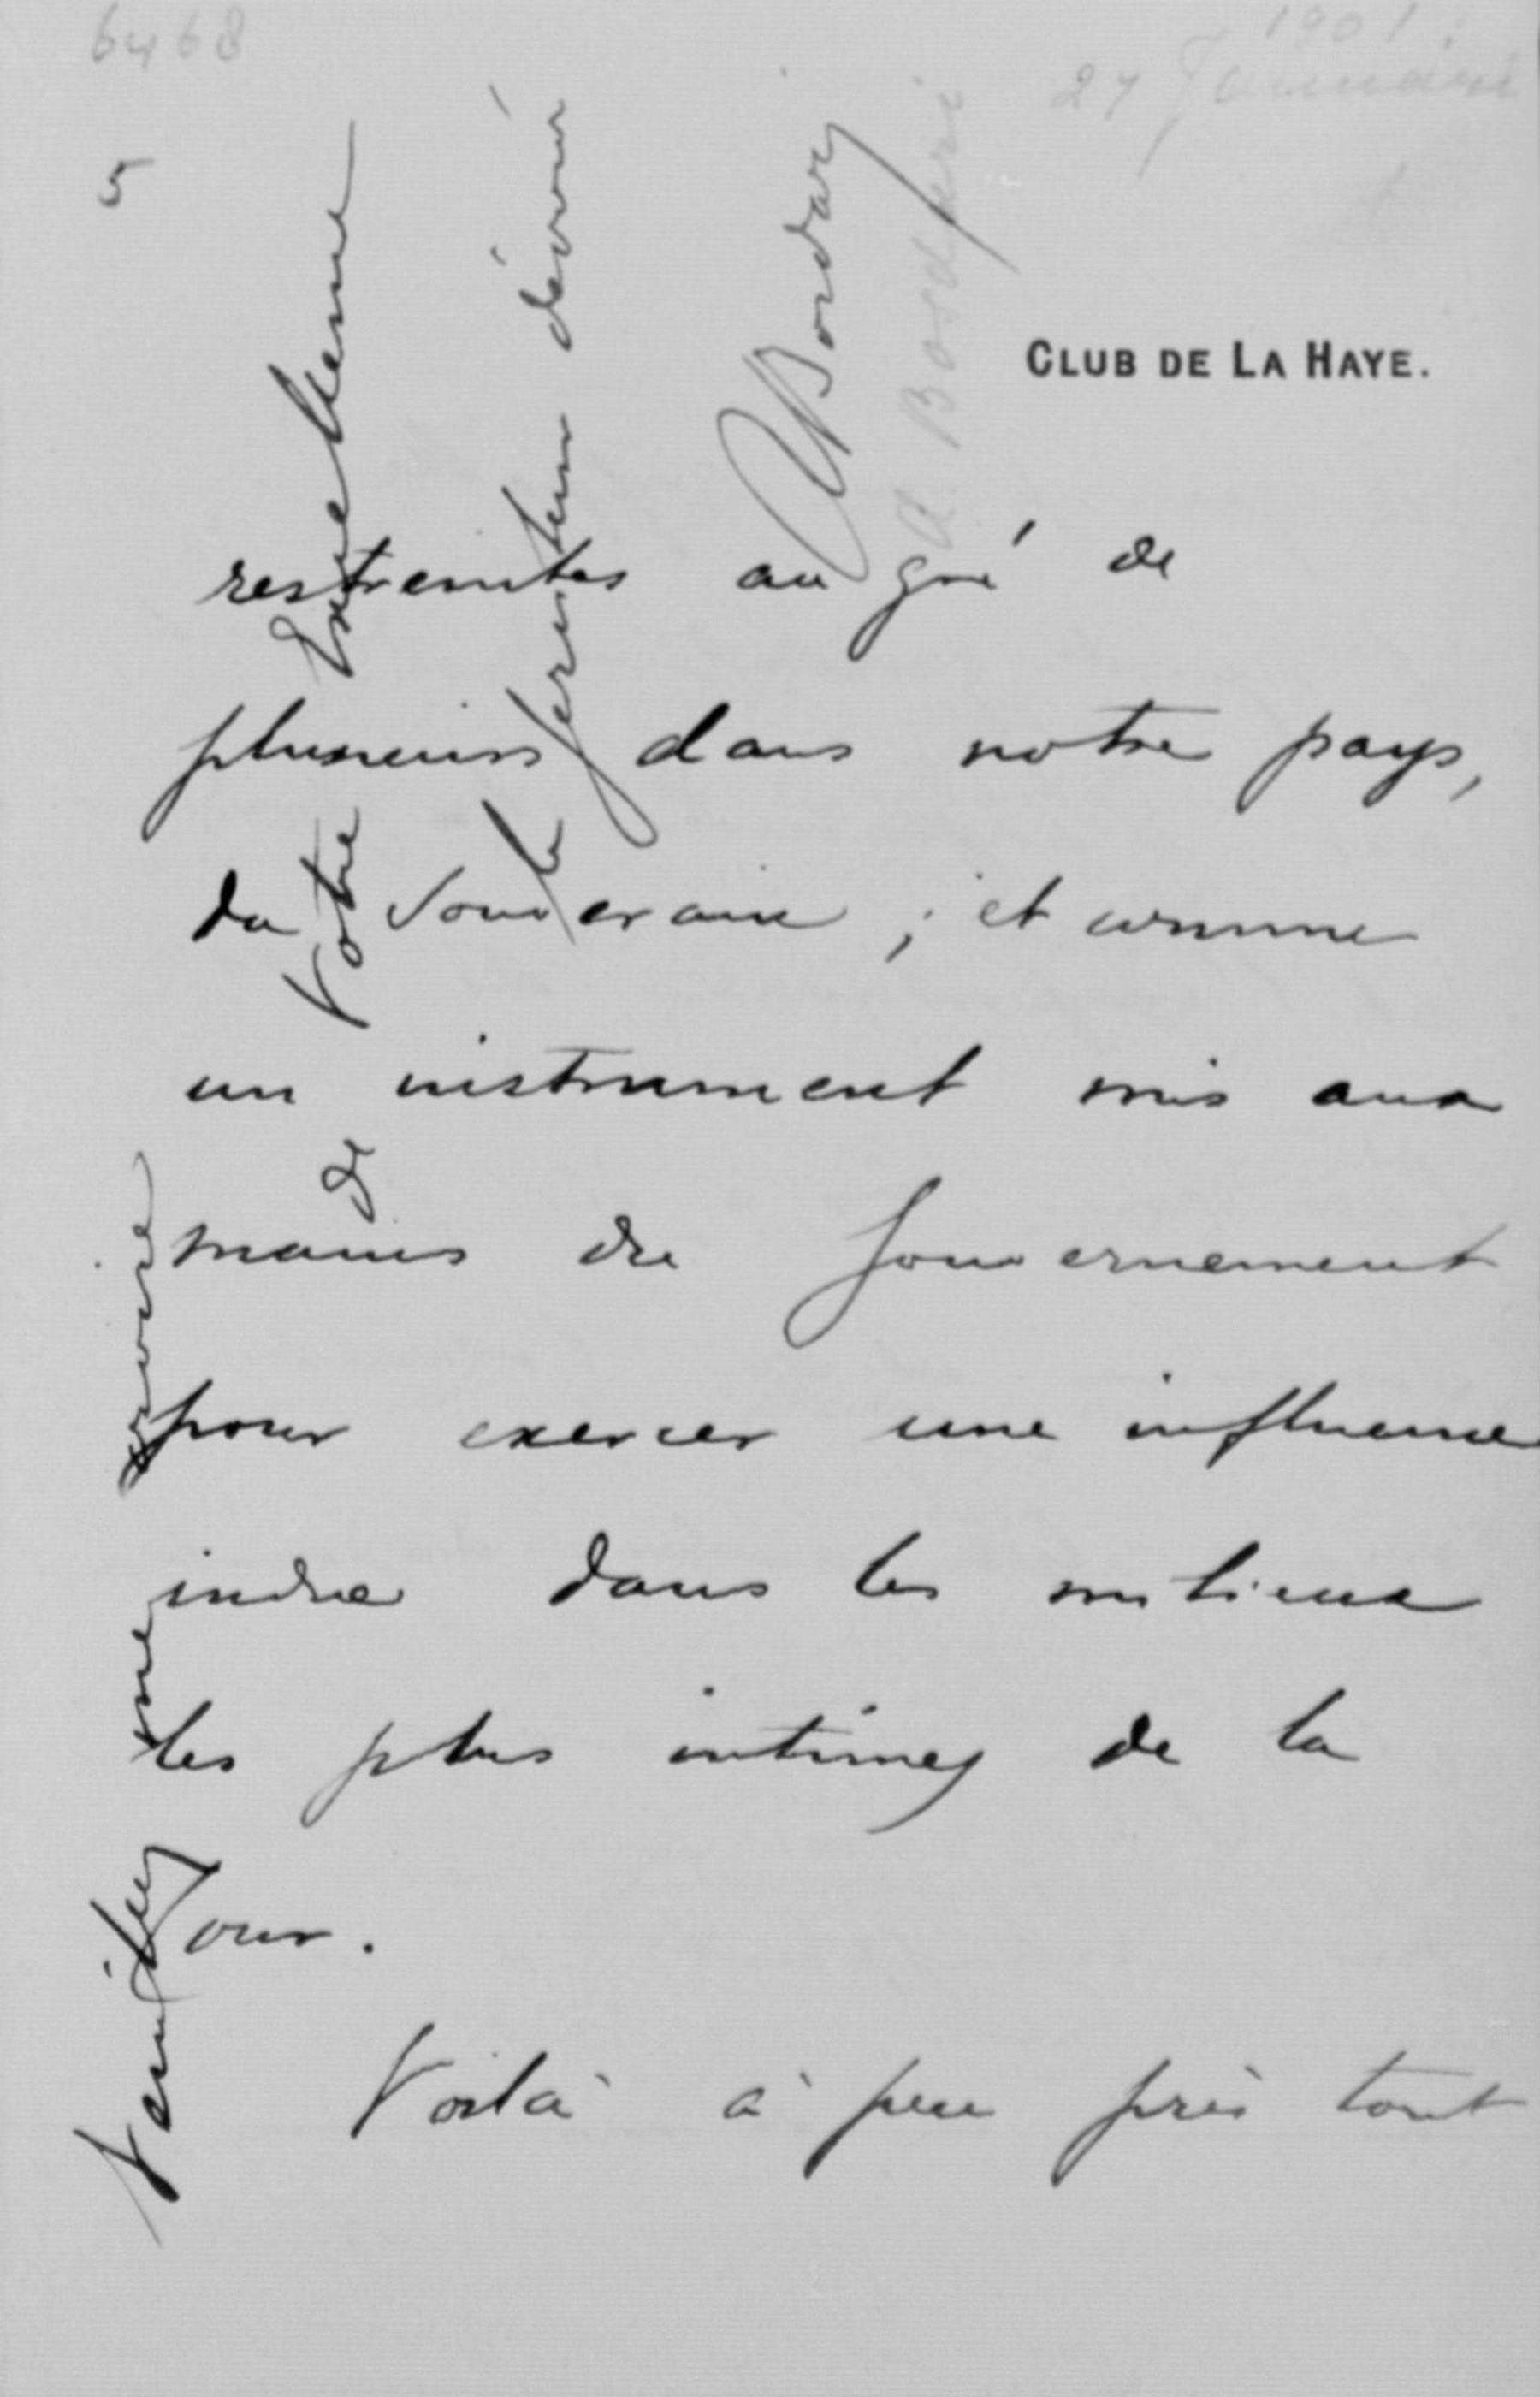 6468
1901
27 Janvier
5
CLUB DE LA HAYE.
restreintes au gré de
plusieurs dans notre pays,
du Souverain ; et comme
un instrument mis aux
mains du Gouvernement
pour exercer une influence
indue dans les milieux
les plus intimes de la
Cour.
Voilà à peu près tout
Veuillez me croire
de Votre Excellence
le serviteur dévoué
ABosdari
A. Bosdari